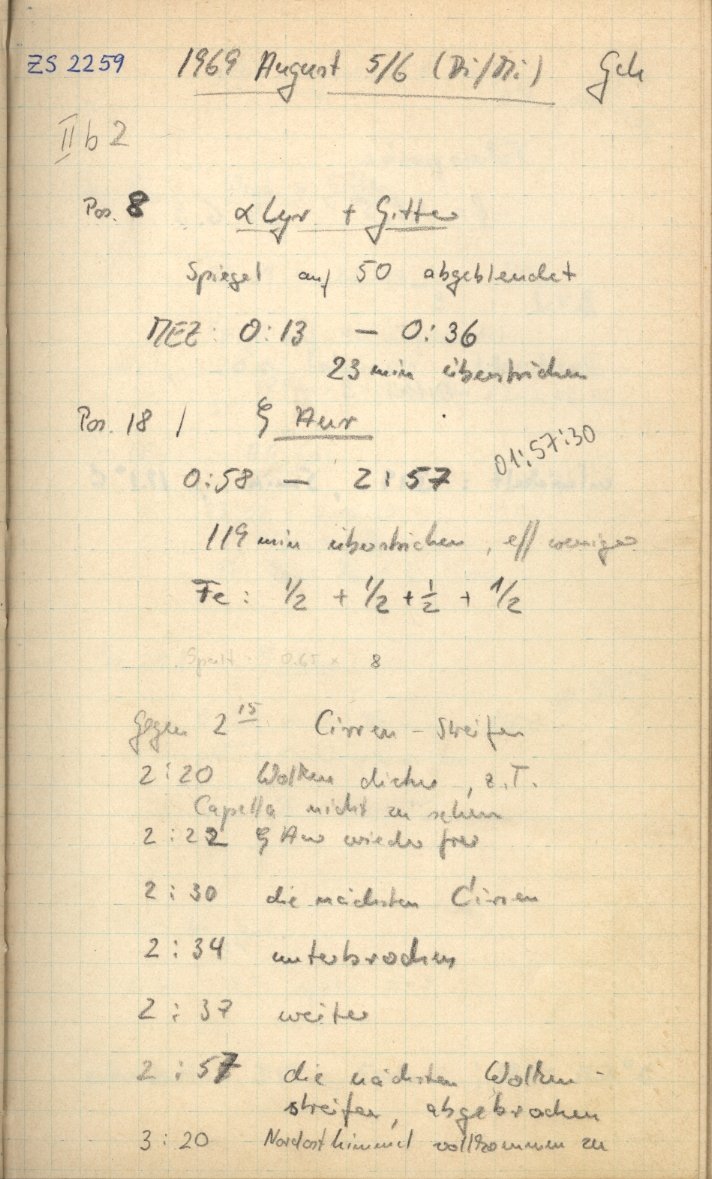 ZS 2259 1969 August 5/6 (Di/Mi) Geh
II b 2
Pos. 8 α Lyr + Gitter
Spiegel auf 50 abgeblendet
MEZ: 0:13 – 0:36
23 min überstrichen
Pos. 18 / ζ Aur
01:57:30
0:58 – 2:57
119 min überstrichen, eff weniger
Fe: 1/2 + 1/2 + 1/2 + 1/2
Spalt 0.65 × 8
Gegen 2 15 Cirren-Streifen
2:20 Wolken dichter, z.T.
Capella nicht zu sehen
2:22 ζ Aur wieder frei
2:30 die nächsten Cirren
2:34 unterbrochen
2:37 weiter
2:57 die nächsten Wolken-
streifen, abgebrochen
3:20 Nordosthimmel vollkommen zu